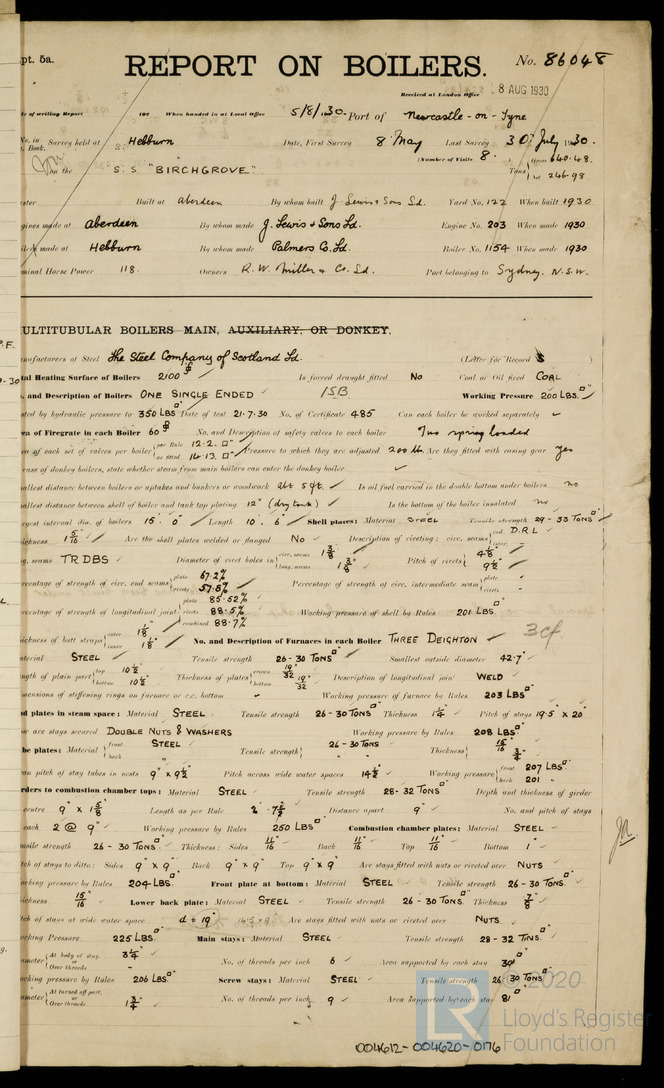 pt. 5a.
REPORT ON BOILERS.
No. 86048
Received at London Office 8 AUG 1930
of writing Report 192 When handed in at Local Office 5/8/1930 Port of Newcastle-on-Tyne
No. in Survey held at Hebburn Date, First Survey 8 May Last Survey 30 July 1930.
Book. (Number of Visits 8.
on the S.S. "BIRCHGROVE" Tons Gross 640.48. Net 246.98
Built at Aberdeen By whom built J. Lewis & Sons Ld. Yard No. 122 When built 1930
gines made at Aberdeen By whom made J. Lewis & Sons Ld. Engine No. 203 When made 1930
made at Hebburn By whom made Palmers Co. Ld. Boiler No. 1154 When made 1930
minal Horse Power 118. Owners R. W. Miller & Co. Ld. Port belonging to Sydney. N.S.W.
ULTITUBULAR BOILERS MAIN, AUXILIARY, OR DONKEY.
nufacturers of Steel The Steel Company of Scotland Ld. (Letter for Record S )
tal Heating Surface of Boilers 2100 Is forced draught fitted No Coal or Oil fired COAL
and Description of Boilers ONE SINGLE ENDED 1SB Working Pressure 200 LBS.
ted by hydraulic pressure to 350 LBS Date of test 21.7.30 No. of Certificate 485 Can each boiler be worked separately
ea of Firegrate in each Boiler 60 No. and Description of safety valves to each boiler Two spring loaded
ea of each set of valves per boiler per Rule 12.2. as fitted 14.13. Pressure to which they are adjusted 200 lb Are they fitted with easing gear yes
case of donkey boilers, state whether steam from main boilers can enter the donkey boiler
allest distance between boilers or uptakes and bunkers or woodwork abt 5 qr. Is oil fuel carried in the double bottom under boilers no
allest distance between shell of boiler and tank top plating 12" (dry tank) Is the bottom of the boiler insulated no
rgest internal dia. of boilers 15.0" Length 10.6" Shell plates: Material STEEL Tensile strength 29-33 TONS
ickness 1 5/16 Are the shell plates welded or flanged No Description of riveting: circ. seams end D.R.L inter.
g. seams TRDBS Diameter of rivet holes in circ. seams 1 3/8 long. seams 1 3/8 Pitch of rivets 4 1/8" 9 1/2"
rcentage of strength of circ. end seams plate 67.2% rivets 57.8% Percentage of strength of circ. intermediate seam plate rivets
rcentage of strength of longitudinal joint plate 85.52% rivets 88.5% combined 88.7% Working pressure of shell by Rules 201 LBS
ickness of butt straps outer 1 1/8 inner 1 1/8 No. and Description of Furnaces in each Boiler THREE DEIGHTON 3cf.
aterial STEEL Tensile strength 26-30 TONS Smallest outside diameter 42.7"
ngth of plain part top 10 1/2 bottom 10 1/2 Thickness of plates crown 19/32 bottom 19/32 Description of longitudinal joint WELD
mensions of stiffening rings on furnace or c.c. bottom Working pressure of furnace by Rules 203 LBS
d plates in steam space: Material STEEL Tensile strength 26-30 TONS Thickness 1 1/4" Pitch of stays 19.5" x 20"
w are stays secured DOUBLE NUTS & WASHERS Working pressure by Rules 208 LBS
be plates: Material front STEEL back Tensile strength 26-30 TONS Thickness 15/16 3/4
an pitch of stay tubes in nests 9" x 9 1/2 Pitch across wide water spaces 14 1/2 Working pressure front 207 LBS back 201
rders to combustion chamber tops: Material STEEL Tensile strength 28-32 TONS Depth and thickness of girder
centre 9" x 1 5/8 Length as per Rule Distance apart 9" No. and pitch of stays
each 2 @ 9" Working pressure by Rules 250 LBS Combustion chamber plates: Material STEEL
nsile strength 26-30 TONS Thickness: Sides 11/16 Back 11/16 Top 11/16 Bottom 1"
tch of stays to ditto: Sides 9" x 9" Back 9" x 9" Top 9" x 9" Are stays fitted with nuts or riveted over NUTS
orking pressure by Rules 204 LBS Front plate at bottom: Material STEEL Tensile strength 26-30 TONS.
ickness 15/16 Lower back plate: Material STEEL Tensile strength 26-30 TONS. Thickness 7/8
tch of stays at wide water space d = 19" Are stays fitted with nuts or riveted over NUTS
orking Pressure 225 LBS. Main stays: Material STEEL Tensile strength 28-32 TONS.
ameter At body of stay, 3 1/4" Over threads No. of threads per inch 6 Area supported by each stay
orking pressure by Rules 206 LBS Screw stays: Material STEEL Tensile strength 26 30 TONS
ameter At turned off part, Over threads 1 3/4" No. of threads per inch 9 Area supported by each stay 81
© 2020
LR Lloyd's Register
Foundation
004612-004620-0176